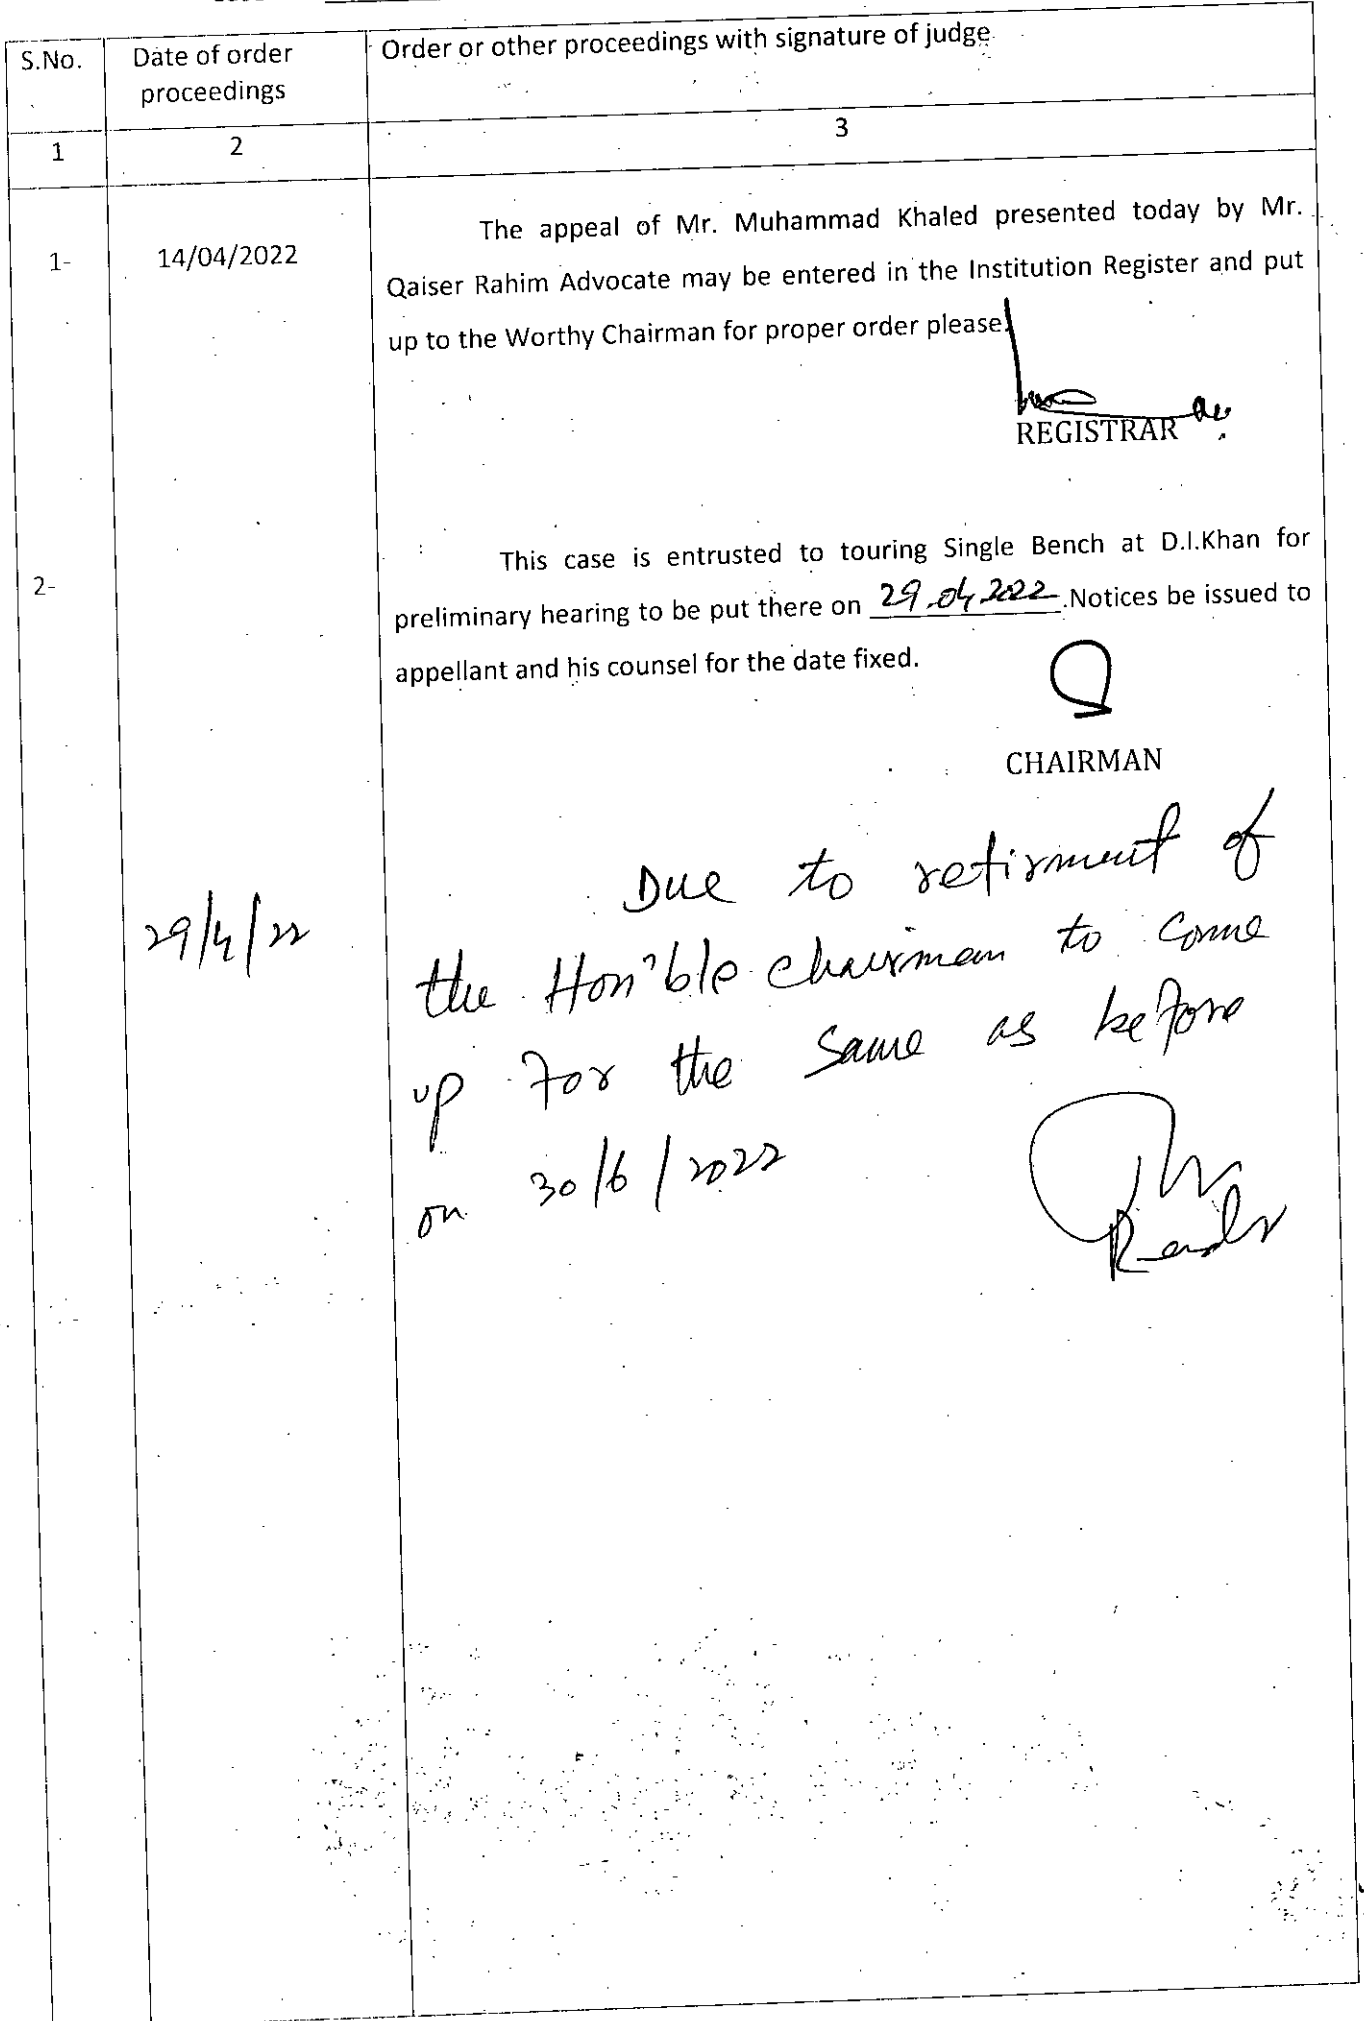 S.No.
Date of order
proceedings
Order or other proceedings with signature of judge
1
2
3
1-
14/04/2022
The appeal of Mr. Muhammad Khaled presented today by Mr.
Qaiser Rahim Advocate may be entered in the Institution Register and put
up to the Worthy Chairman for proper order please.
REGISTRAR
2-
This case is entrusted to touring Single Bench at D.I.Khan for
preliminary hearing to be put there on 29.04.2022.Notices be issued to
appellant and his counsel for the date fixed.
CHAIRMAN
29/4/22
Due to retirment of
the Hon'ble chairman to come
up for the same as before
on 30/6/2022
Reader